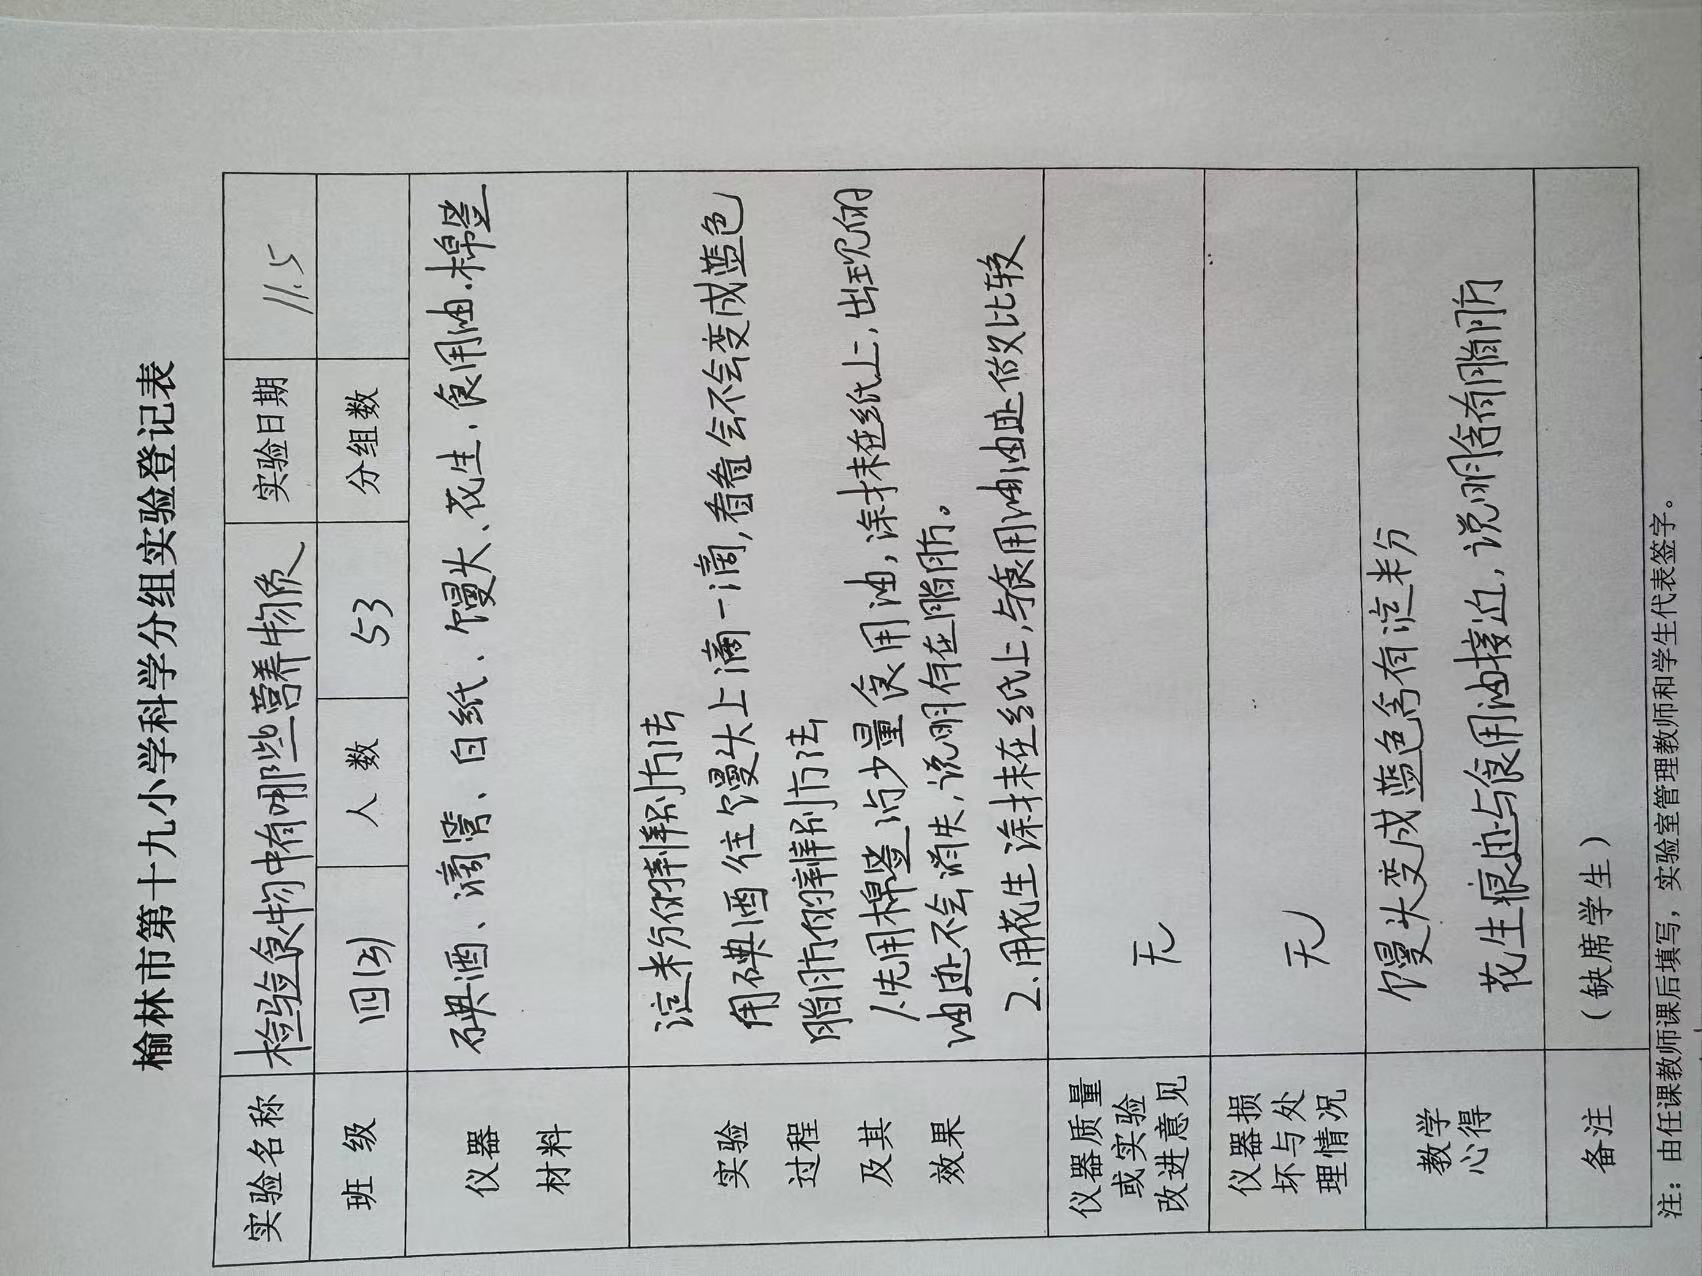 榆林市第十九小学科学分组实验登记表
实验名称 检验食物中有哪些营养物质 实验日期 11.5
班 级 四(3) 人 数 53 分组数
仪器 材料 碘酒、滴管、白纸、馒头、花生、食用油.棉签
实验 过程 及其 效果
淀粉的辨别方法
用碘酒往馒头上滴一滴,看看会不会变成蓝色
脂肪的辨别方法
1.先用棉签沾少量食用油,涂抹在纸上,出现的
油迹不会消失,说明存在脂肪。
2.用花生涂抹在纸上,与食用油油迹做比较
仪器质量 或实验 改进意见 无
仪器损 坏与处 理情况 无
教学 心得
馒头变成蓝色含有淀粉
花生痕迹与食用油接近,说明含有脂肪
备注 (缺席学生)
注:由任课教师课后填写,实验室管理教师和学生代表签字。